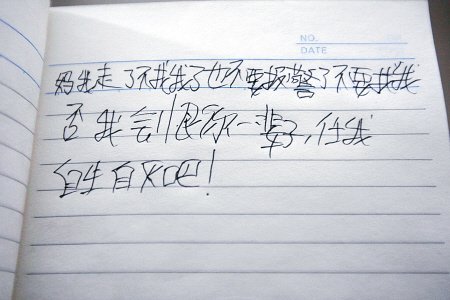 NO.
DATE
妈我走了不找我了也不要报警了不要找我
否我会恨你一辈子,任我
自生自灭吧!